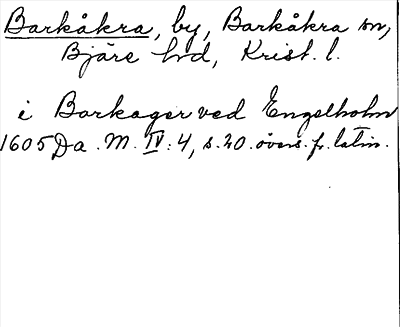 Barkåkra, by, Barkåkra sn,
Bjäre hd, Krist. l.
i Barkager ved Engelholm
1605 Da. M. IV: 4, s. 20. övers. fr. latin.